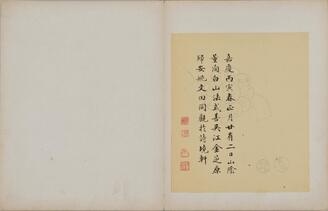 嘉慶丙寅春正月廿有二日山陰
董洵白山法式善吳江金芝原
歸安姚文田同觀於詩境軒